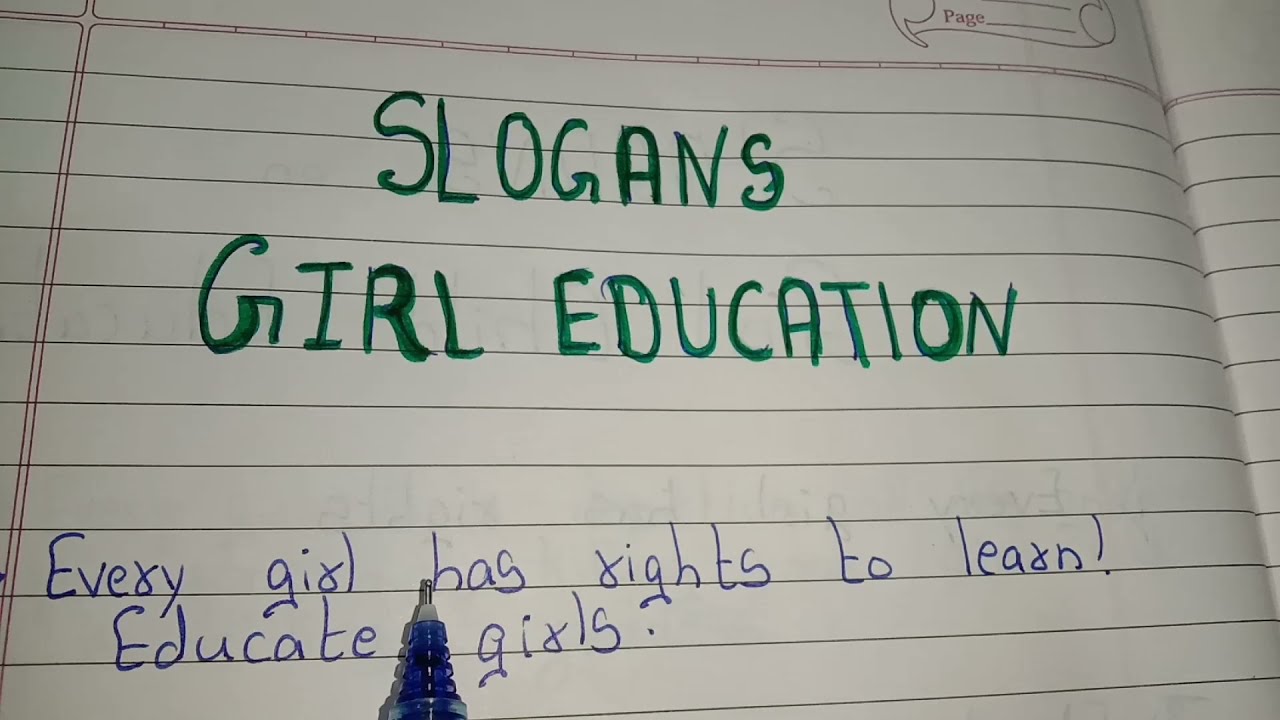 Page
SLOGANS
GIRL EDUCATION
Every girl has rights to learn!
Educate girls.